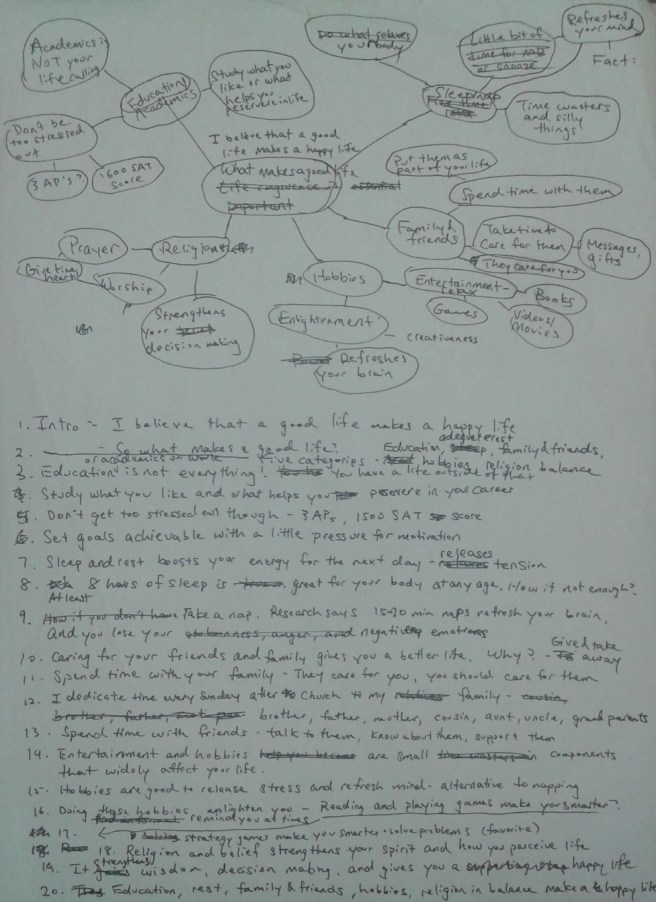 Academics is
NOT your
life calling
Education/
Academics
Study what you
like or what
helps you
persevere in life
Don't be
too stressed
out
3 AP's?
1600 SAT
score
Do what relaxes
your body
Little bit of
time for nap
or snooze
Refreshes
your mind
Fact:
Sleep/nap
Free time
Time wasters
and silly
things
I believe that a good
life makes a happy life
What makes a good life
essential
important
Put them as
part of your life
Spend time with them
Family &
friends
Take time to
care for them
Messages,
gifts
They care for you
Prayer
Religion
Give time,
heart
Worship
Strengthens
your belief
decision making
Hobbies
Entertainment-
relax
Books
Games
Videos/
Movies
Enlightenment
creativeness
Power Refreshes
your brain
1. Intro - I believe that a good life makes a happy life
2. - So what makes a good life? Education, adequate rest sleep, family & friends,
or academics or work Five categories - hobbies, religion balance
3. Education is not everything! You have a life outside of that
4. Study what you like and what helps you persevere in your career
5. Don't get too stressed out though - 3 APs, 1500 SAT score
6. Set goals achievable with a little pressure for motivation
7. Sleep and rest boosts your energy for the next day - releases tension
8. 8 hours of sleep is great for your body at any age. How if not enough?
At least
9. How if you don't have Take a nap. Research says 15-20 min naps refresh your brain,
And you lose your stubbornness, anger, and negative emotions
10. Caring for your friends and family gives you a better life. Why? - Give & take away
11. Spend time with your family - They care for you, you should care for them
12. I dedicate time every Sunday after Church to my relatives family - cousin,
brother, father, brother, father, mother, cousin, aunt, uncle, grandparents
13. Spend time with friends - talk to them, know about them, support them
14. Entertainment and hobbies help you become are small time wasters in components
that widely affect your life.
15. Hobbies are good to release stress and refresh mind - alternative to napping
16. Doing these hobbies enlighten you - Reading and playing games make you smarter?
remind you at times
17. strategy games make you smarter - solve problems (favorite)
18. Religion and belief strengthens your spirit and how you perceive life
19. It strengthens wisdom, decision making, and gives you a happy life
20. Education, rest, family & friends, hobbies, religion in balance make a happy life